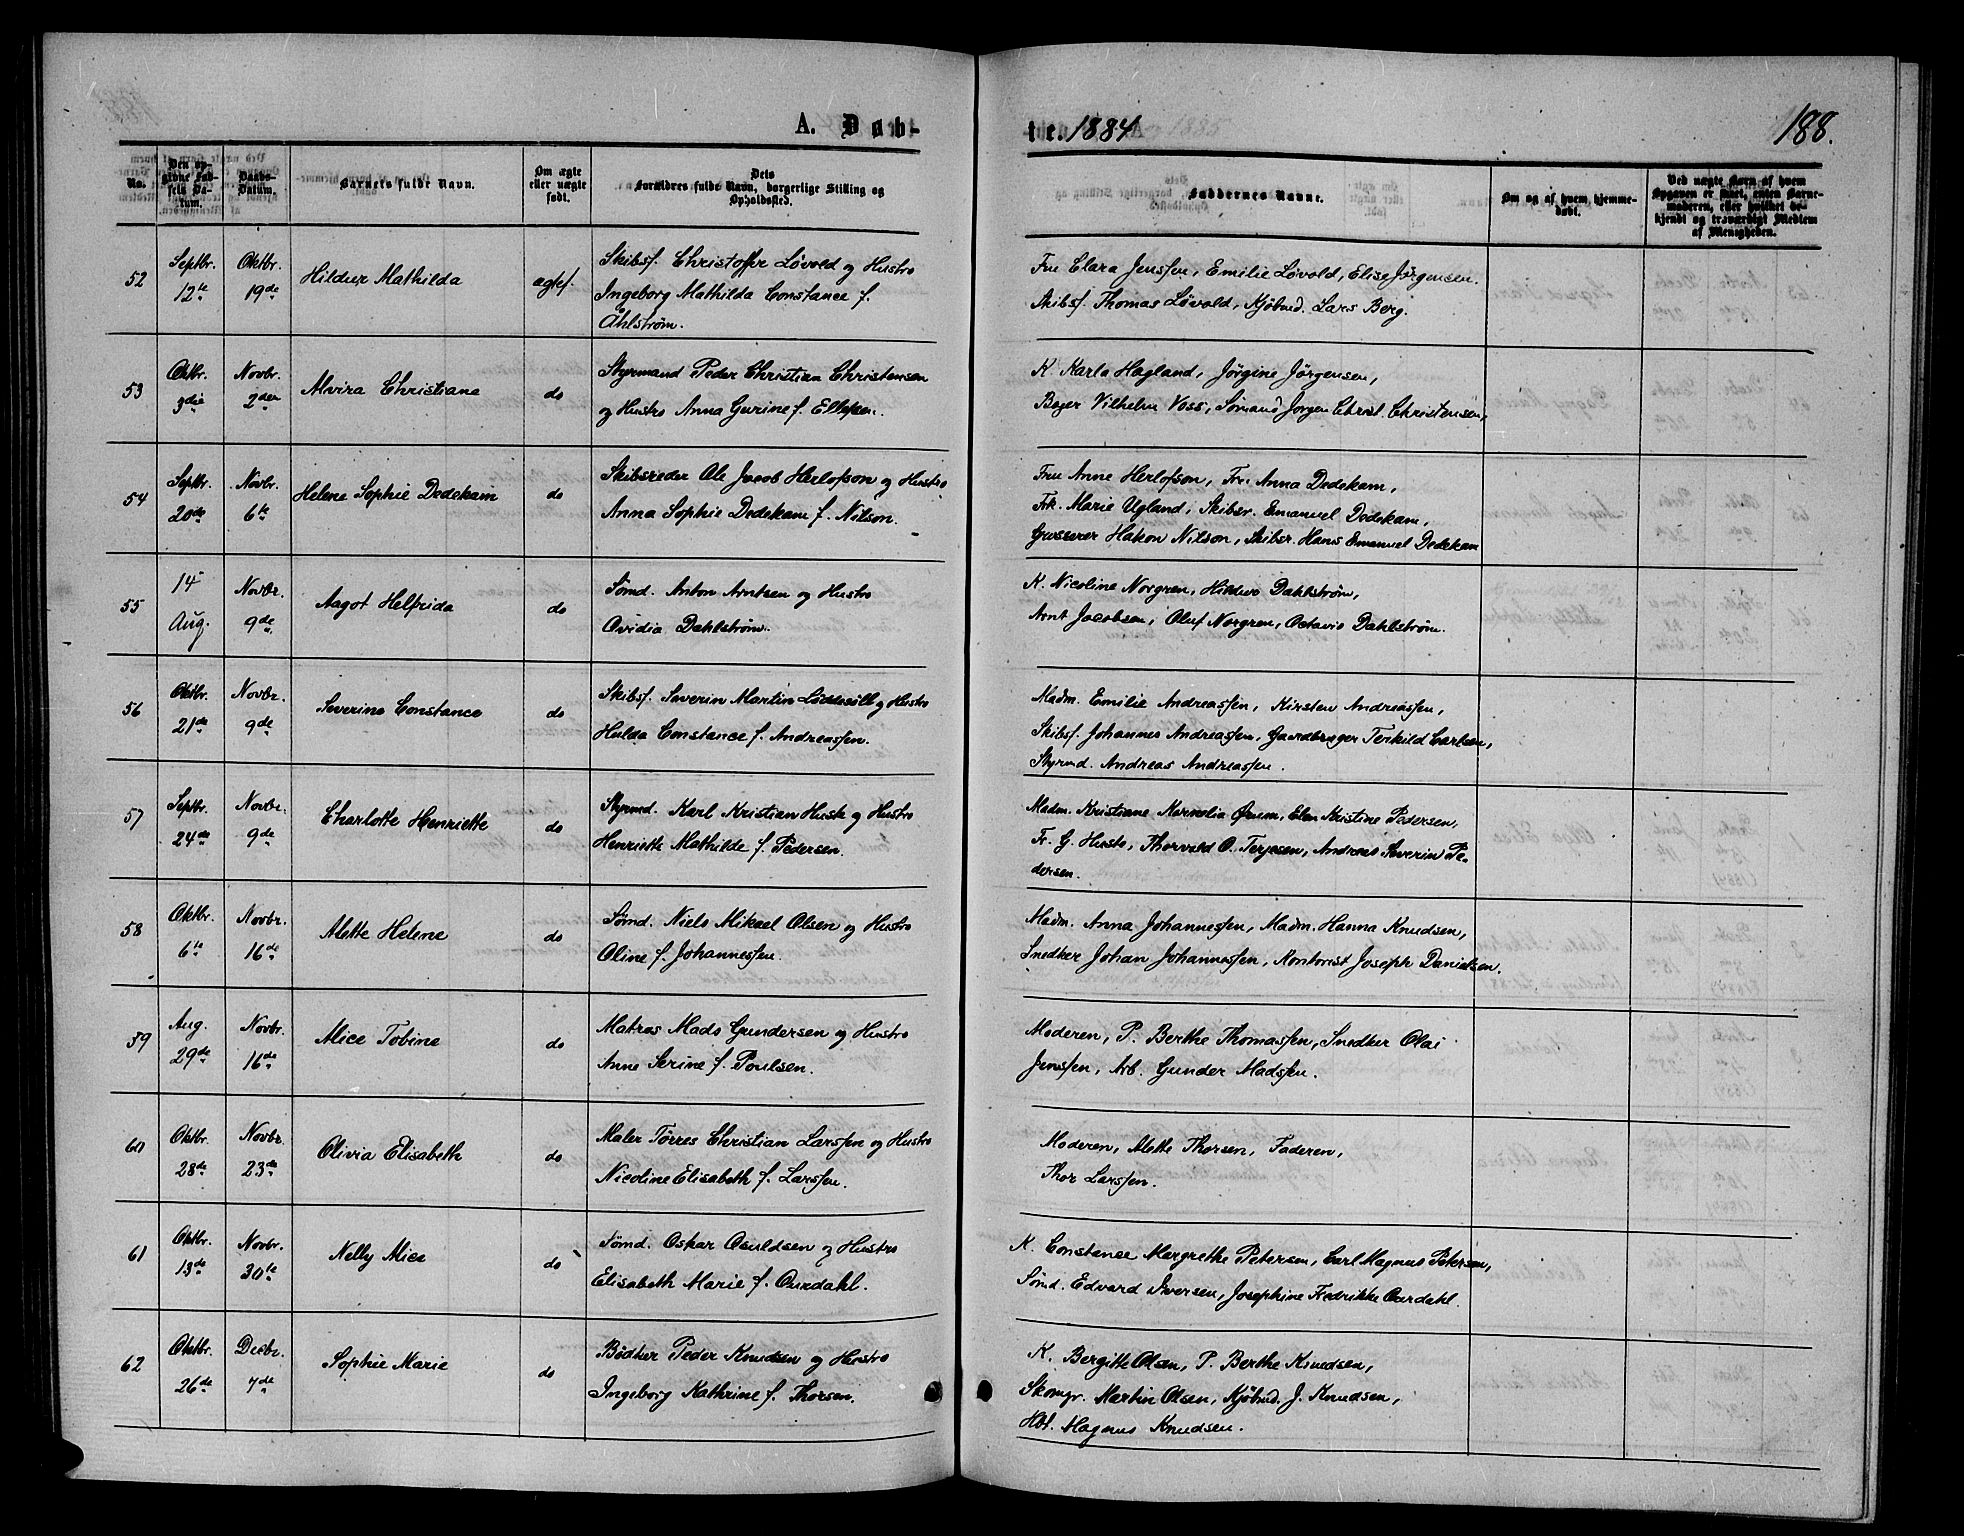 A. Døb-
te. 1884
188.
No.
Den opgivne Fødsels Datum.
Daabs-Datum.
Barnets fulde Navn.
Om ægte eller uægte født.
Dets Forældres fulde Navn, borgerlige Stilling og Opholdssted.
Faddernes Navne.
Om og af hvem hjemmedøbt.
Ved uægte Børn af hvem Opgaven er skeet, enten Barnemoderen, eller hvilket bekjendt og troværdigt Medlem af Menigheden.
52
Septbr. 12te
Oktbr. 19de
Hildur Mathilda
ægtef.
Skibsf. Christoffer Løvold og Hustro
Ingeborg Mathilda Constance f.
Ahlstrøm.
Fru Clara Jenssen, Emilie Løvold, Elise Jørgensen.
Skibsf. Thomas Løvold, Kjøbmd. Lars Berg.
53
Oktbr. 3die
Novbr. 2den
Alvira Christiane
do
Styrmand Peder Christian Christensen
og Hustro Anna Gurine f. Ellefsen.
K. Karla Hagland, Jörgine Jörgensen,
Bager Vilhelm Voss, Sömand Jorgen Christ. Christensen,
54
Septbr. 20de
Novbr. 6te
Helene Sophie Dedekam
do
Skibsreder Ole Jacob Herlofson og Hustro
Anna Sophie Dedekam f. Nilson.
Fru Anne Herlofson, Fr. Anna Dedekam,
Frk. Marie Ugland, Skibsr. Emanuel Dedekam,
Grosserer Hakon Nilson, Skibsr. Hans Emanuel Dedekam
55
14 Aug.
Novbr. 9de
Aagot Helfrida
do
Sömd. Anton Arntsen og Hustro
Ovidia Dahlström.
K. Nicoline Norgren, Hildur Dahlström,
Arnt Jacobsen, Oluf Norgren, Octavio Dahlström.
56
Oktbr. 21de
Novbr. 9de
Severine Constance
do
Skibsf. Severin Martin Løddesöll og Hustro
Hulda Constance f. Andreassen.
Madm. Emilie Andreassen, Kirsten Andreassen,
Skibsf. Johannes Andreassen, Gaardbruger Terkild Carlsen,
Styrmd. Andreas Andreassen.
57
Septbr. 24de
Novbr. 9de
Charlotte Henriette
do
Styrmd. Karl Kristian Husta og Hustro
Henriette Mathilde f. Pedersen.
Madm. Kristiane Kornelia Ørum, Elen Kristine Pedersen,
Fr. G. Husto, Thorvald O. Terjesen, Andreas Severin Pe-
dersen.
58
Oktbr. 6te
Novbr. 16de
Alette Helene
do
Sömd. Niels Mikael Olsen og Hustro
Oline f. Johannessen.
Madm. Anna Johannessen, Madm. Hanna Knudsen,
Snedker Johan Johannessen, Kontorist Joseph Danielsen.
39
Aug. 29de
Novbr. 16de
Alice Tobine
do
Matros Mads Gundersen og Hustro
Anne Serine f. Poulsen.
Moderen, P. Berthe Thomassen, Snedker Olai
Jenssen, Arb. Gunder Madssen.
60
Oktbr. 28de
Novbr. 23de
Olivia Elisabeth
do
Maler Törres Christian Larssen og Hustro
Nicoline Elisabeth f. Larssen.
Moderen, Alette Thorsen, Faderen,
Thor Larssen.
61
Oktbr. 13de
Novbr. 30te
Nelly Alice
do
Sömd. Oskar Osuldsen og Hustro
Elisabeth Marie f. Ourdahl.
K. Constance Margrethe Petersen, Carl Magnus Petersen,
Sömd. Edvard Iversen, Josephine Fredrikke Ourdahl.
62
Oktbr. 26de
Decbr. 7de
Sophie Marie
do
Bödker Peder Knudsen og Hustro
Ingeborg Kathrine f. Thorsen.
K. Bergitte Olsen, P. Berthe Knudsen,
Skomgr. Martin Olsen, Kjöbmd. J. Knudsen,
Hbf. Magnus Knudsen.